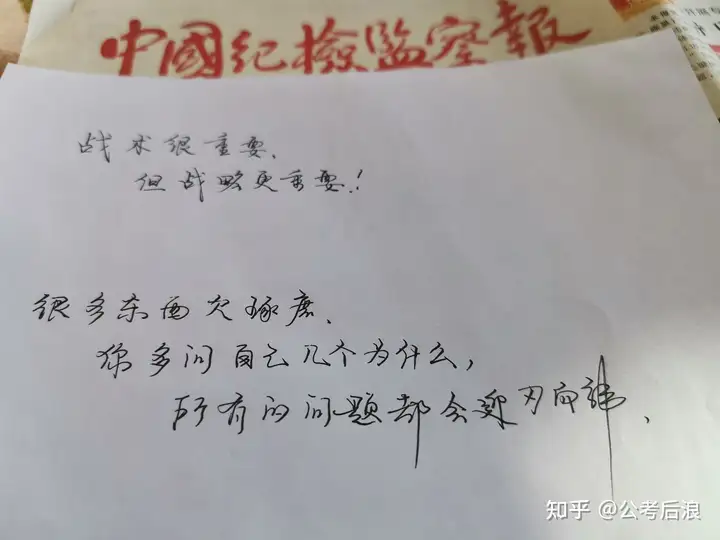 中國纪檢監察報
战术很重要、
但战略更重要！
很多东西欠琢磨、
你多问自己几个为什么，
所有的问题都会迎刃而解、
知乎 @公考后浪